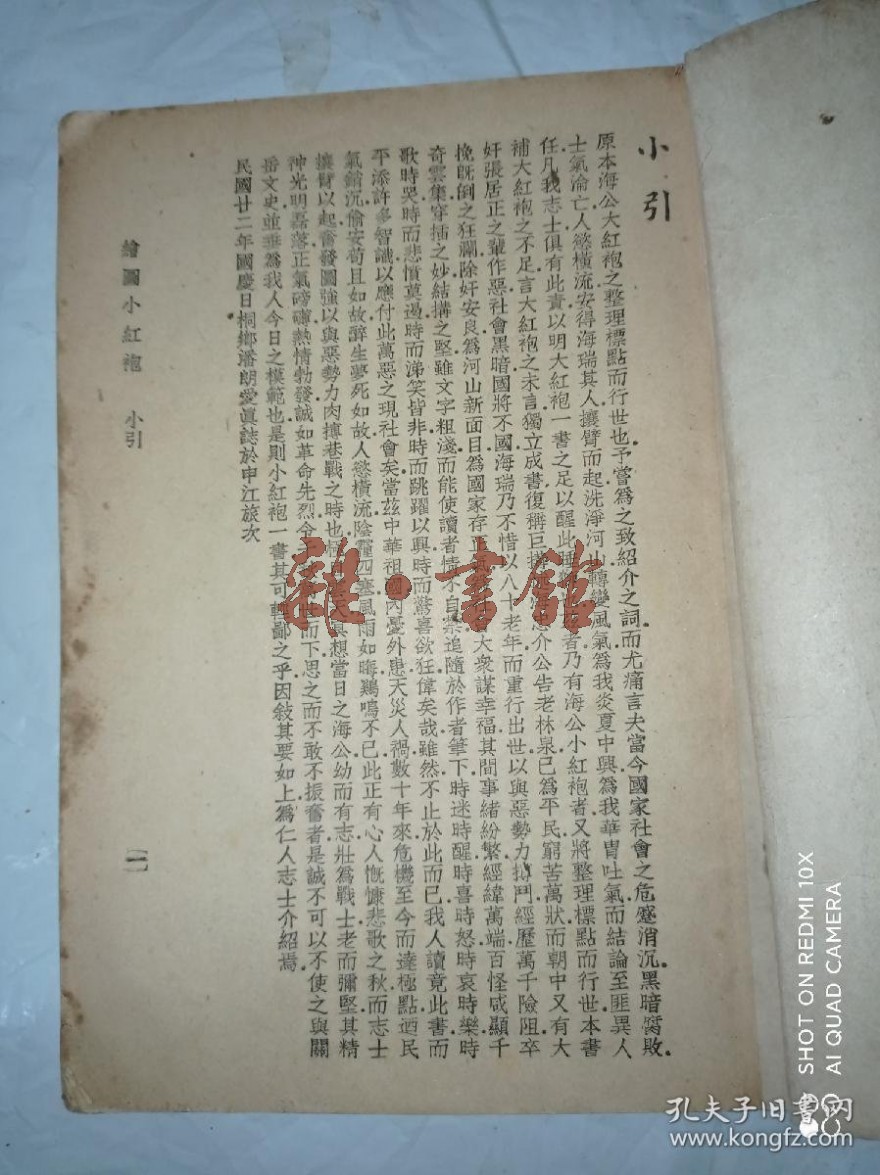 小引
原本海公大紅袍之整理標點而行世也予嘗爲之致紹介之詞而尤痛言夫當今國家社會之危蹙消沉黑暗腐敗
士氣淪亡人慾橫流安得海瑞其人攘臂而起洗淨河山轉變風氣爲我炎夏中興爲我華冑吐氣而結論至匪異人
任凡我志士俱有此責以明大紅袍一書之足以醒此睡者乃有海公小紅袍者又將整理標點而行世本書
補大紅袍之不足言大紅袍之未言獨立成書復稱巨介公告老林泉已爲平民窮苦萬狀而朝中又有大
奸張居正之輩作惡社會黑暗國將不國海瑞乃不惜以八十老年而重行出世以與惡勢力搏鬥經歷萬千險阻卒
挽既倒之狂瀾除奸安良爲河山新面目爲國家存正大衆謀幸福其間事緒紛繁經緯萬端百怪咸顯千
奇雲集穿插之妙結搆之堅雖文字粗淺而能使讀者情不自禁追隨於作者筆下時迷時醒時喜時怒時哀時樂時
歌時哭時而悲憤莫遏時而涕笑皆非時而跳躍以興時而驚喜欲狂偉矣哉雖然不止於此而已我人讀竟此書而
平添許多智識以應付此萬惡之現社會矣當茲中華祖國內憂外患天災人禍數十年來危機至今而達極點迺民
氣銷沉偷安苟且如故醉生夢死如故人慾橫流陰霾四塞風雨如晦鷄鳴不已此正有心人慨慷悲歌之秋而志士
攘臂以起奮發圖強以與惡勢力肉搏巷戰之時也想當日之海公幼而有志壯爲戰士老而彌堅其精
神光明磊落正氣磅礴熱情勃發誠如革命先烈令而下思之而不敢不振奮者是誠不可以不使之與關
岳文史並垂爲我人今日之模範也是則小紅袍一書其可輕鄙之乎因敍其要如上爲仁人志士介紹焉
民國廿二年國慶日桐鄉潘朗愛眞誌於申江旅次
繪圖小紅袍 小引 〔一〕
雜·書館
SHOT ON REDMI 10X
AI QUAD CAMERA
孔夫子旧書网
www.kongfz.com